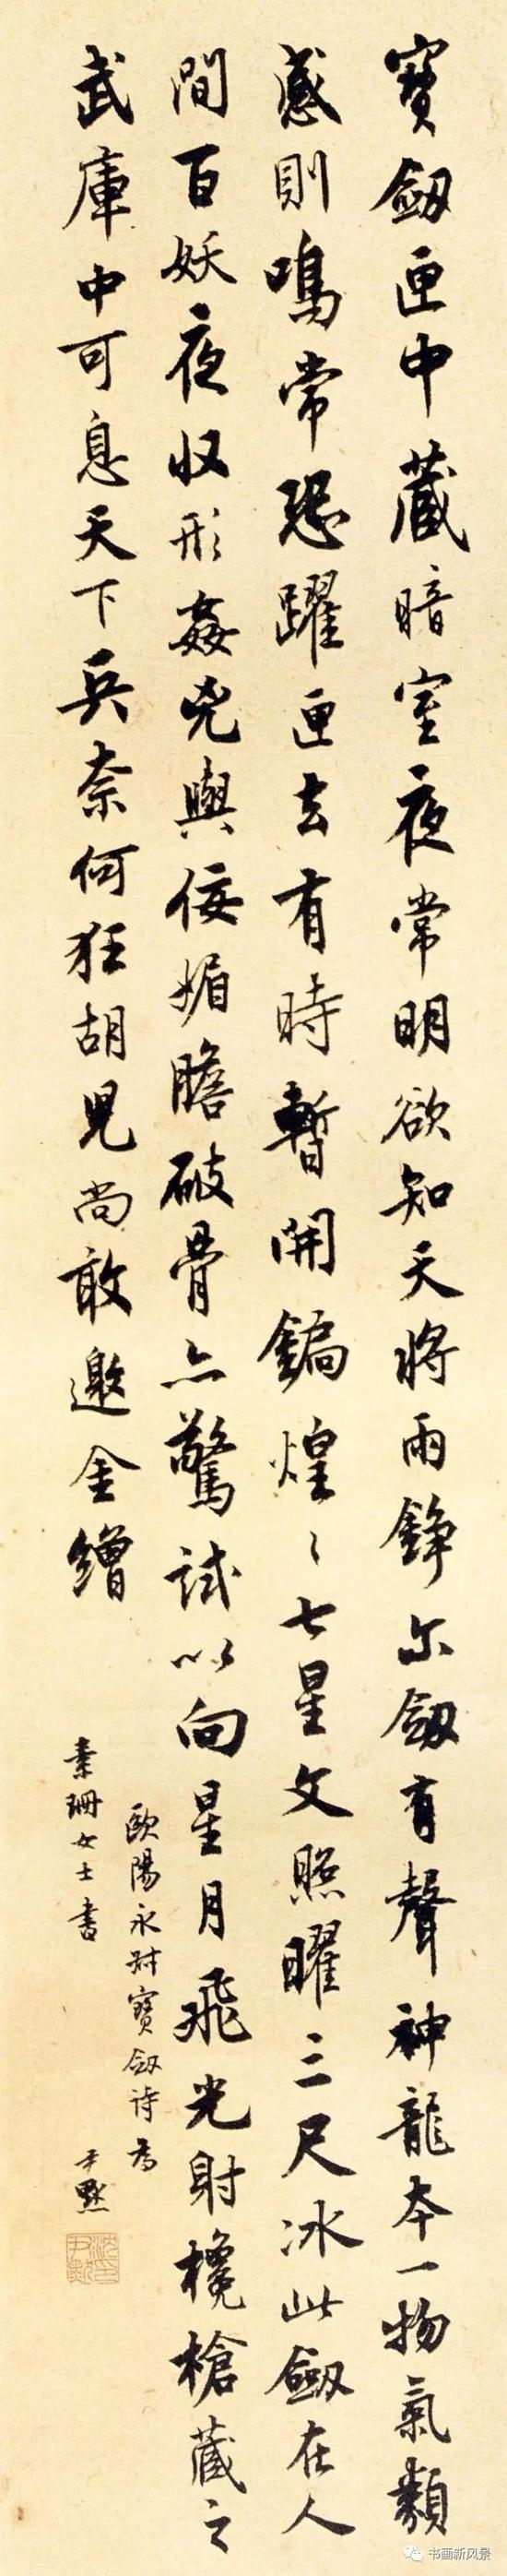 寶劔匣中藏暗室夜常明欲知天將雨錚尔劔有聲神龍本一物氣類
感則鳴常恐躍匣去有時暫開鐍煌〻七星文照曜三尺冰此劔在人
間百妖夜収形姦兇與佞媚膽破骨亦驚試以向星月飛光射欃槍藏之
武庫中可息天下兵奈何狂胡兒尚敢邀金繒
歐陽永叔寶劔詩為
素珊女士書
尹默
沈尹默
书画新风景